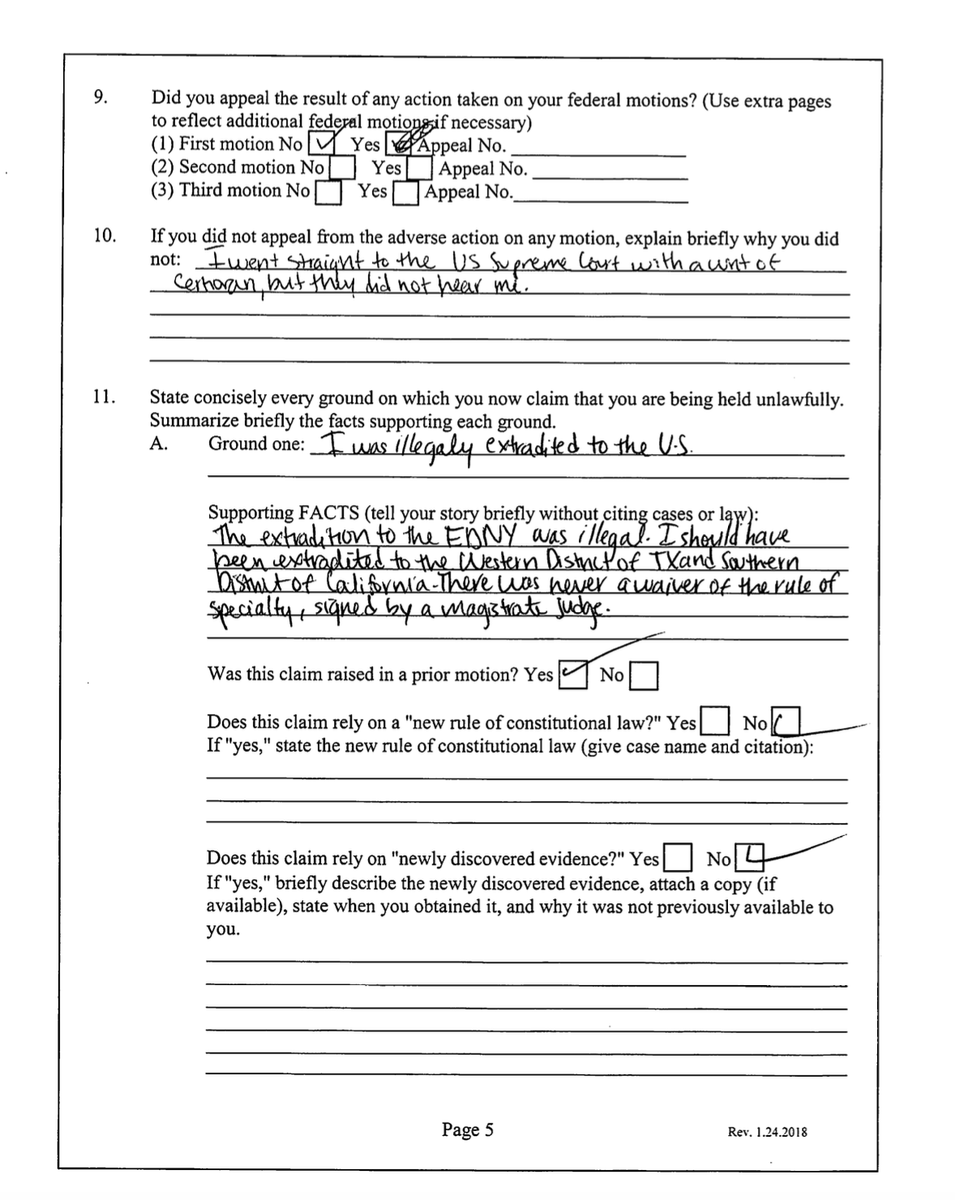 9. Did you appeal the result of any action taken on your federal motions? (Use extra pages
to reflect additional federal motions if necessary)
(1) First motion No ☑ Yes ☐ Appeal No. ____
(2) Second motion No ☐ Yes ☐ Appeal No. ____
(3) Third motion No ☐ Yes ☐ Appeal No. ____
10. If you did not appeal from the adverse action on any motion, explain briefly why you did
not: I went straight to the US Supreme Court with a writ of
Cerhorari, but they did not hear me.
11. State concisely every ground on which you now claim that you are being held unlawfully.
Summarize briefly the facts supporting each ground.
A. Ground one: I was illegaly extradited to the U.S.
Supporting FACTS (tell your story briefly without citing cases or law):
The extradition to the EDNY was illegal. I should have
been extradited to the Western District of TX and Southern
District of California. There was never a waiver of the rule of
specialty, signed by a magistrate judge.
Was this claim raised in a prior motion? Yes ☑ No ☐
Does this claim rely on a "new rule of constitutional law?" Yes ☐ No ☑
If "yes," state the new rule of constitutional law (give case name and citation):
Does this claim rely on "newly discovered evidence?" Yes ☐ No ☑
If "yes," briefly describe the newly discovered evidence, attach a copy (if
available), state when you obtained it, and why it was not previously available to
you.
Page 5
Rev. 1.24.2018